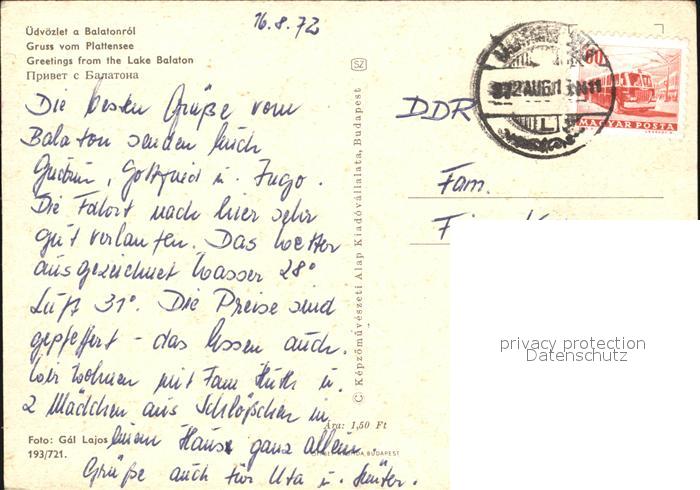 16.8.72
Üdvözlet a Balatonról
Gruss vom Plattensee
Greetings from the Lake Balaton
Привет с Балатона
Die besten Grüße vom
Balaton senden Euch
Gudrun, Gottfried u. Ingo.
Die Fahrt nach hier sehr
gut verlaufen. Das Wetter
ausgezeichnet Wasser 28°
Luft 31°. Die Preise sind
gepfeffert - das Essen auch.
Wir wohnen mit Fam Huth u.
2 Mädchen aus Schlößchen in
einem Haus ganz allein
Grüße auch für Uta u. Günter.
Foto: Gál Lajos
193/721.
SZ
© Képzőművészeti Alap Kiadóvállalata, Budapest
Ára: 1,50 Ft
BUDAPEST
60
MAGYAR POSTA
DDR
Fam.
privacy protection
Datenschutz